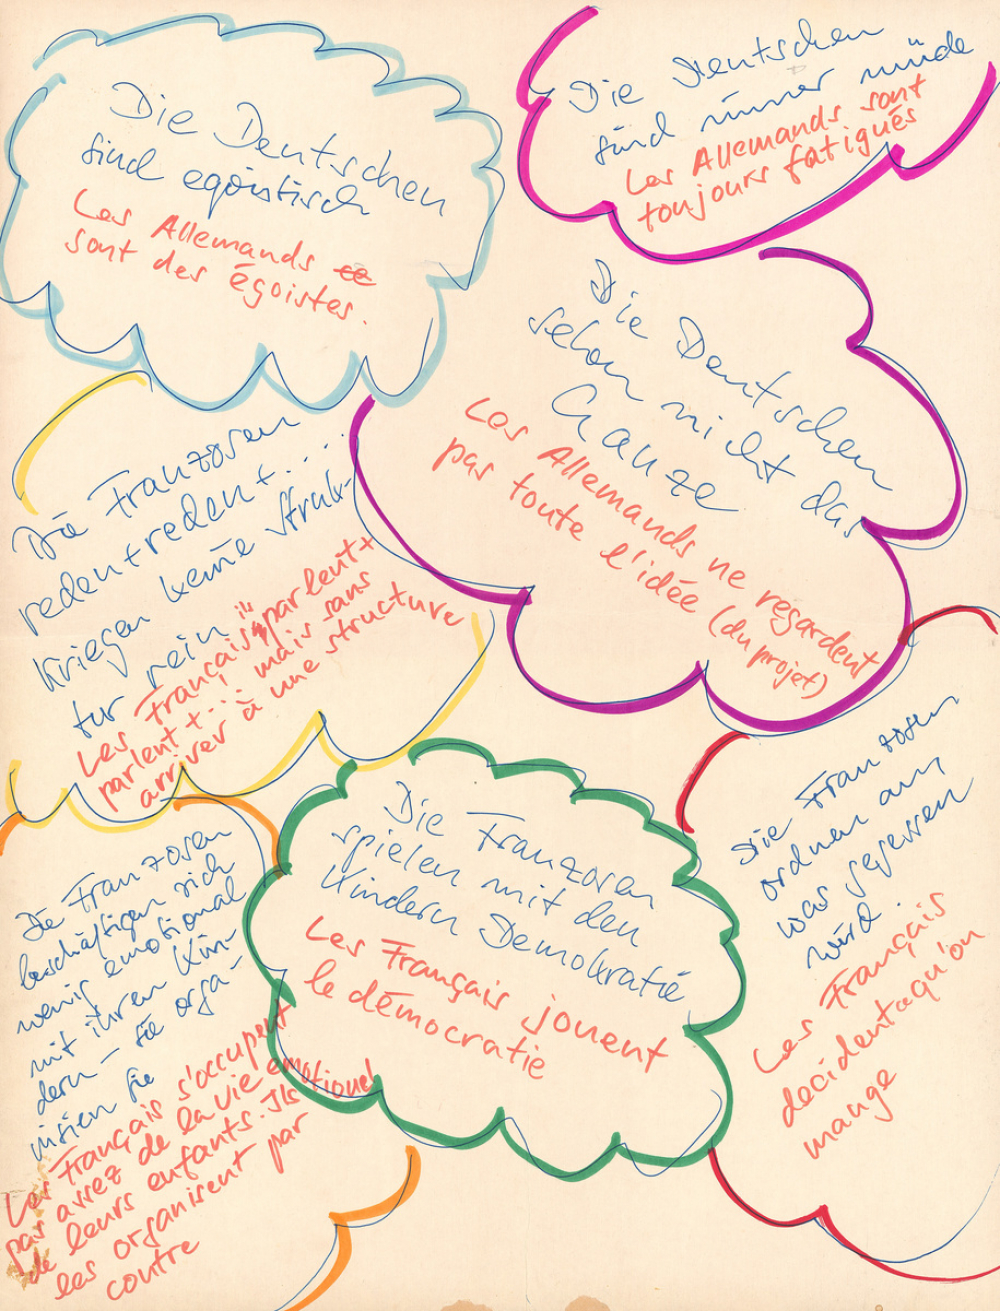 Die Deutschen
sind egoistisch
Les Allemands
sont des égoistes.
Die Deutschen
sind immer müde
Les Allemands sont
toujours fatigués
Die Deutschen
sehen nicht das
Ganze
Les Allemands ne regardent
pas toute l'idée (du projet)
Die Franzosen
reden + reden + ....
kriegen keine Struk-
tur rein
Les Français parlent +
ils parlent + ... mais sans
arriver à une structure
Die Franzosen
spielen mit den
Kindern Demokratie
Les Français jouent
le démocratie
Die Franzosen
ordnen an,
was gegessen
wird.
Les Français
decident qu'on
mange
Die Franzosen
beschäftigen sich
wenig emotional
mit ihren Kin-
dern – sie orga-
nisieren sie
Les Français s'occupent
pas assez de la vie emotionel
de leurs enfants. Ils
les organisent par
contre